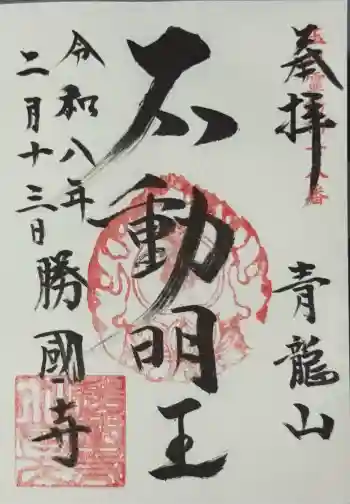 奉拝
青龍山
不動明王
令和八年
二月十三日
勝國寺